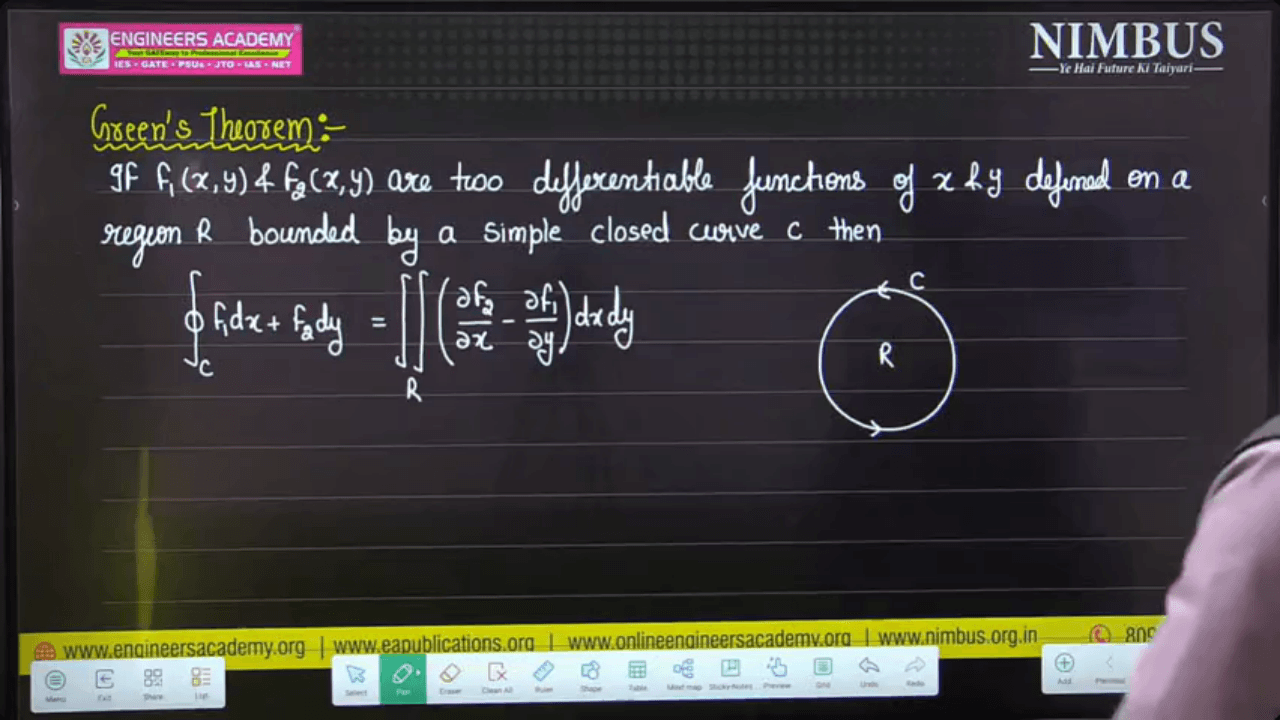 ENGINEERS ACADEMY
Your GATEway to Professional Excellence
IES • GATE • PSUs • JTO • IAS • NET
NIMBUS
Ye Hai Future Ki Taiyari
Green's Theorem:-
If f₁(x,y) & f₂(x,y) are two differentiable functions of x & y defined on a
region R bounded by a simple closed curve c then
∮_C f₁dx + f₂dy = ∬_R (∂f₂/∂x - ∂f₁/∂y) dx dy
C
R
www.engineersacademy.org | www.eapublications.org | www.onlineengineersacademy.org | www.nimbus.org.in 809
Menu Exit Share List Select Pen Eraser Clean All Ruler Shape Table Mind map Sticky-Notes Preview Grid Undo Redo Add Previous